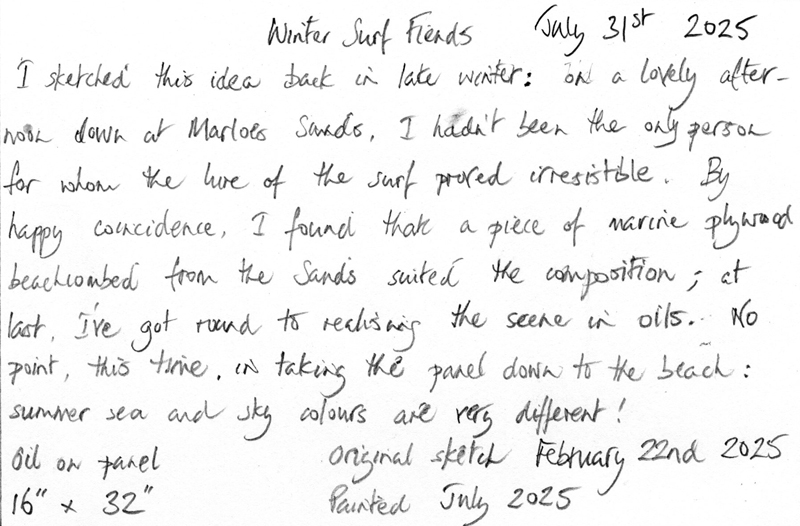 Winter Surf Fiends July 31st 2025
I sketched this idea back in late winter: on a lovely after-
noon down at Marloes Sands, I hadn't been the only person
for whom the lure of the surf proved irresistible. By
happy coincidence, I found that a piece of marine plywood
beachcombed from the Sands suited the composition; at
last, I've got round to realising the scene in oils. No
point, this time, in taking the panel down to the beach:
summer sea and sky colours are very different!
Oil on panel Original sketch February 22nd 2025
16" x 32" Painted July 2025